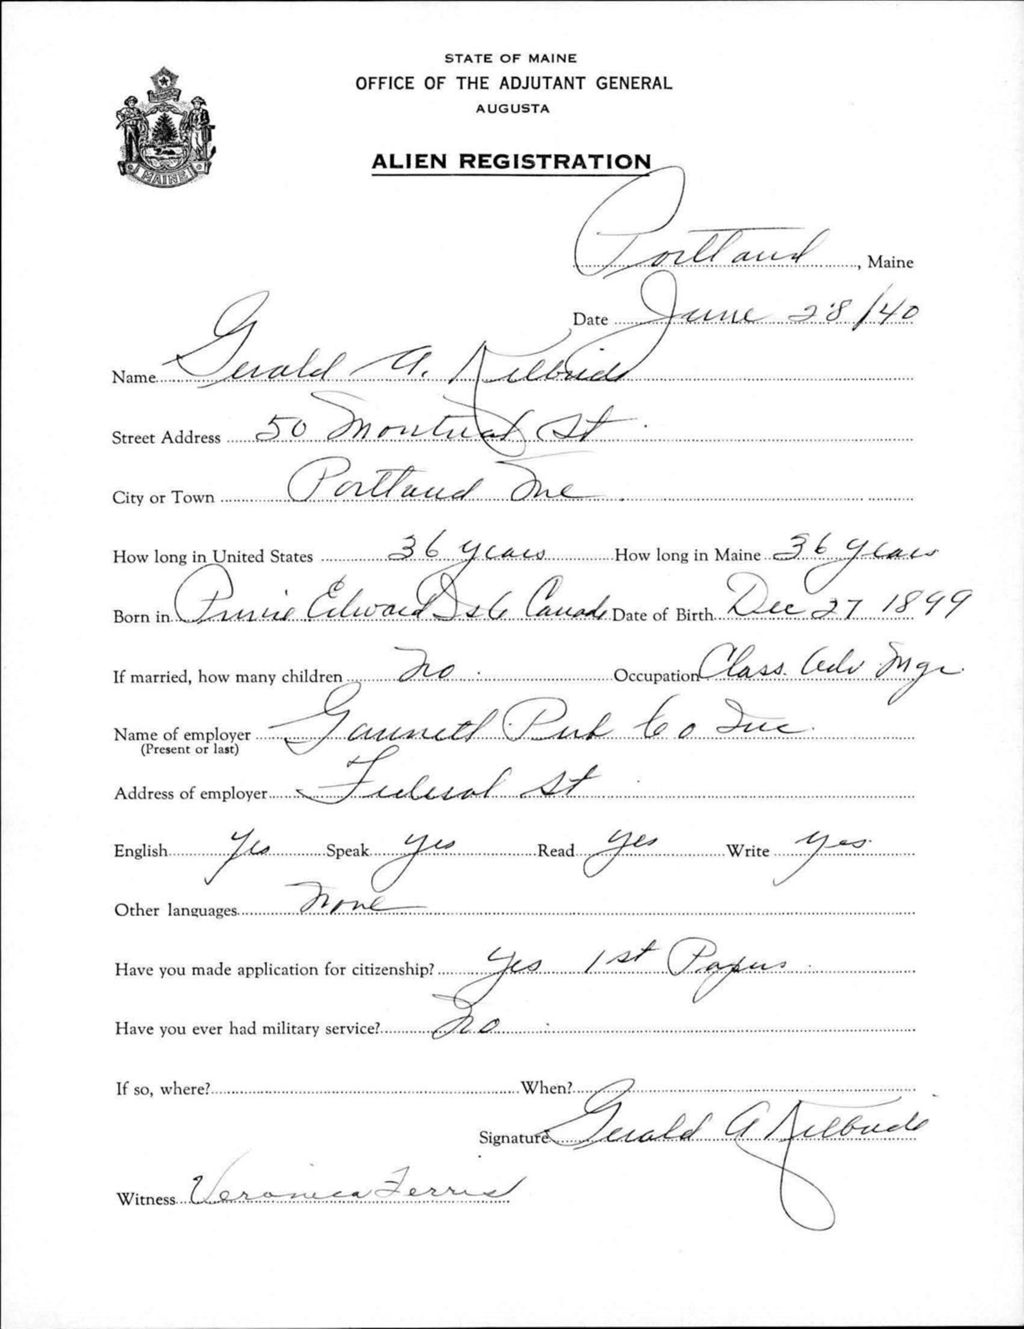 STATE OF MAINE
OFFICE OF THE ADJUTANT GENERAL
AUGUSTA
MAINE
ALIEN REGISTRATION
Portland, Maine
Date June 28/40
Name Gerald A. Kilbride
Street Address 50 Montreal St
City or Town Portland Me
How long in United States 36 years How long in Maine 36 years
Born in Prince Edward Isle Canada Date of Birth Dec 27 1899
If married, how many children no Occupation Class. Adv Mgr.
Name of employer Gannett Pub Co Inc.
(Present or last)
Address of employer Federal St
English yes Speak yes Read yes Write yes
Other languages None
Have you made application for citizenship? Yes 1st Papers
Have you ever had military service? No
If so, where? When?
Signature Gerald A Kilbride
Witness Veronica Ferris